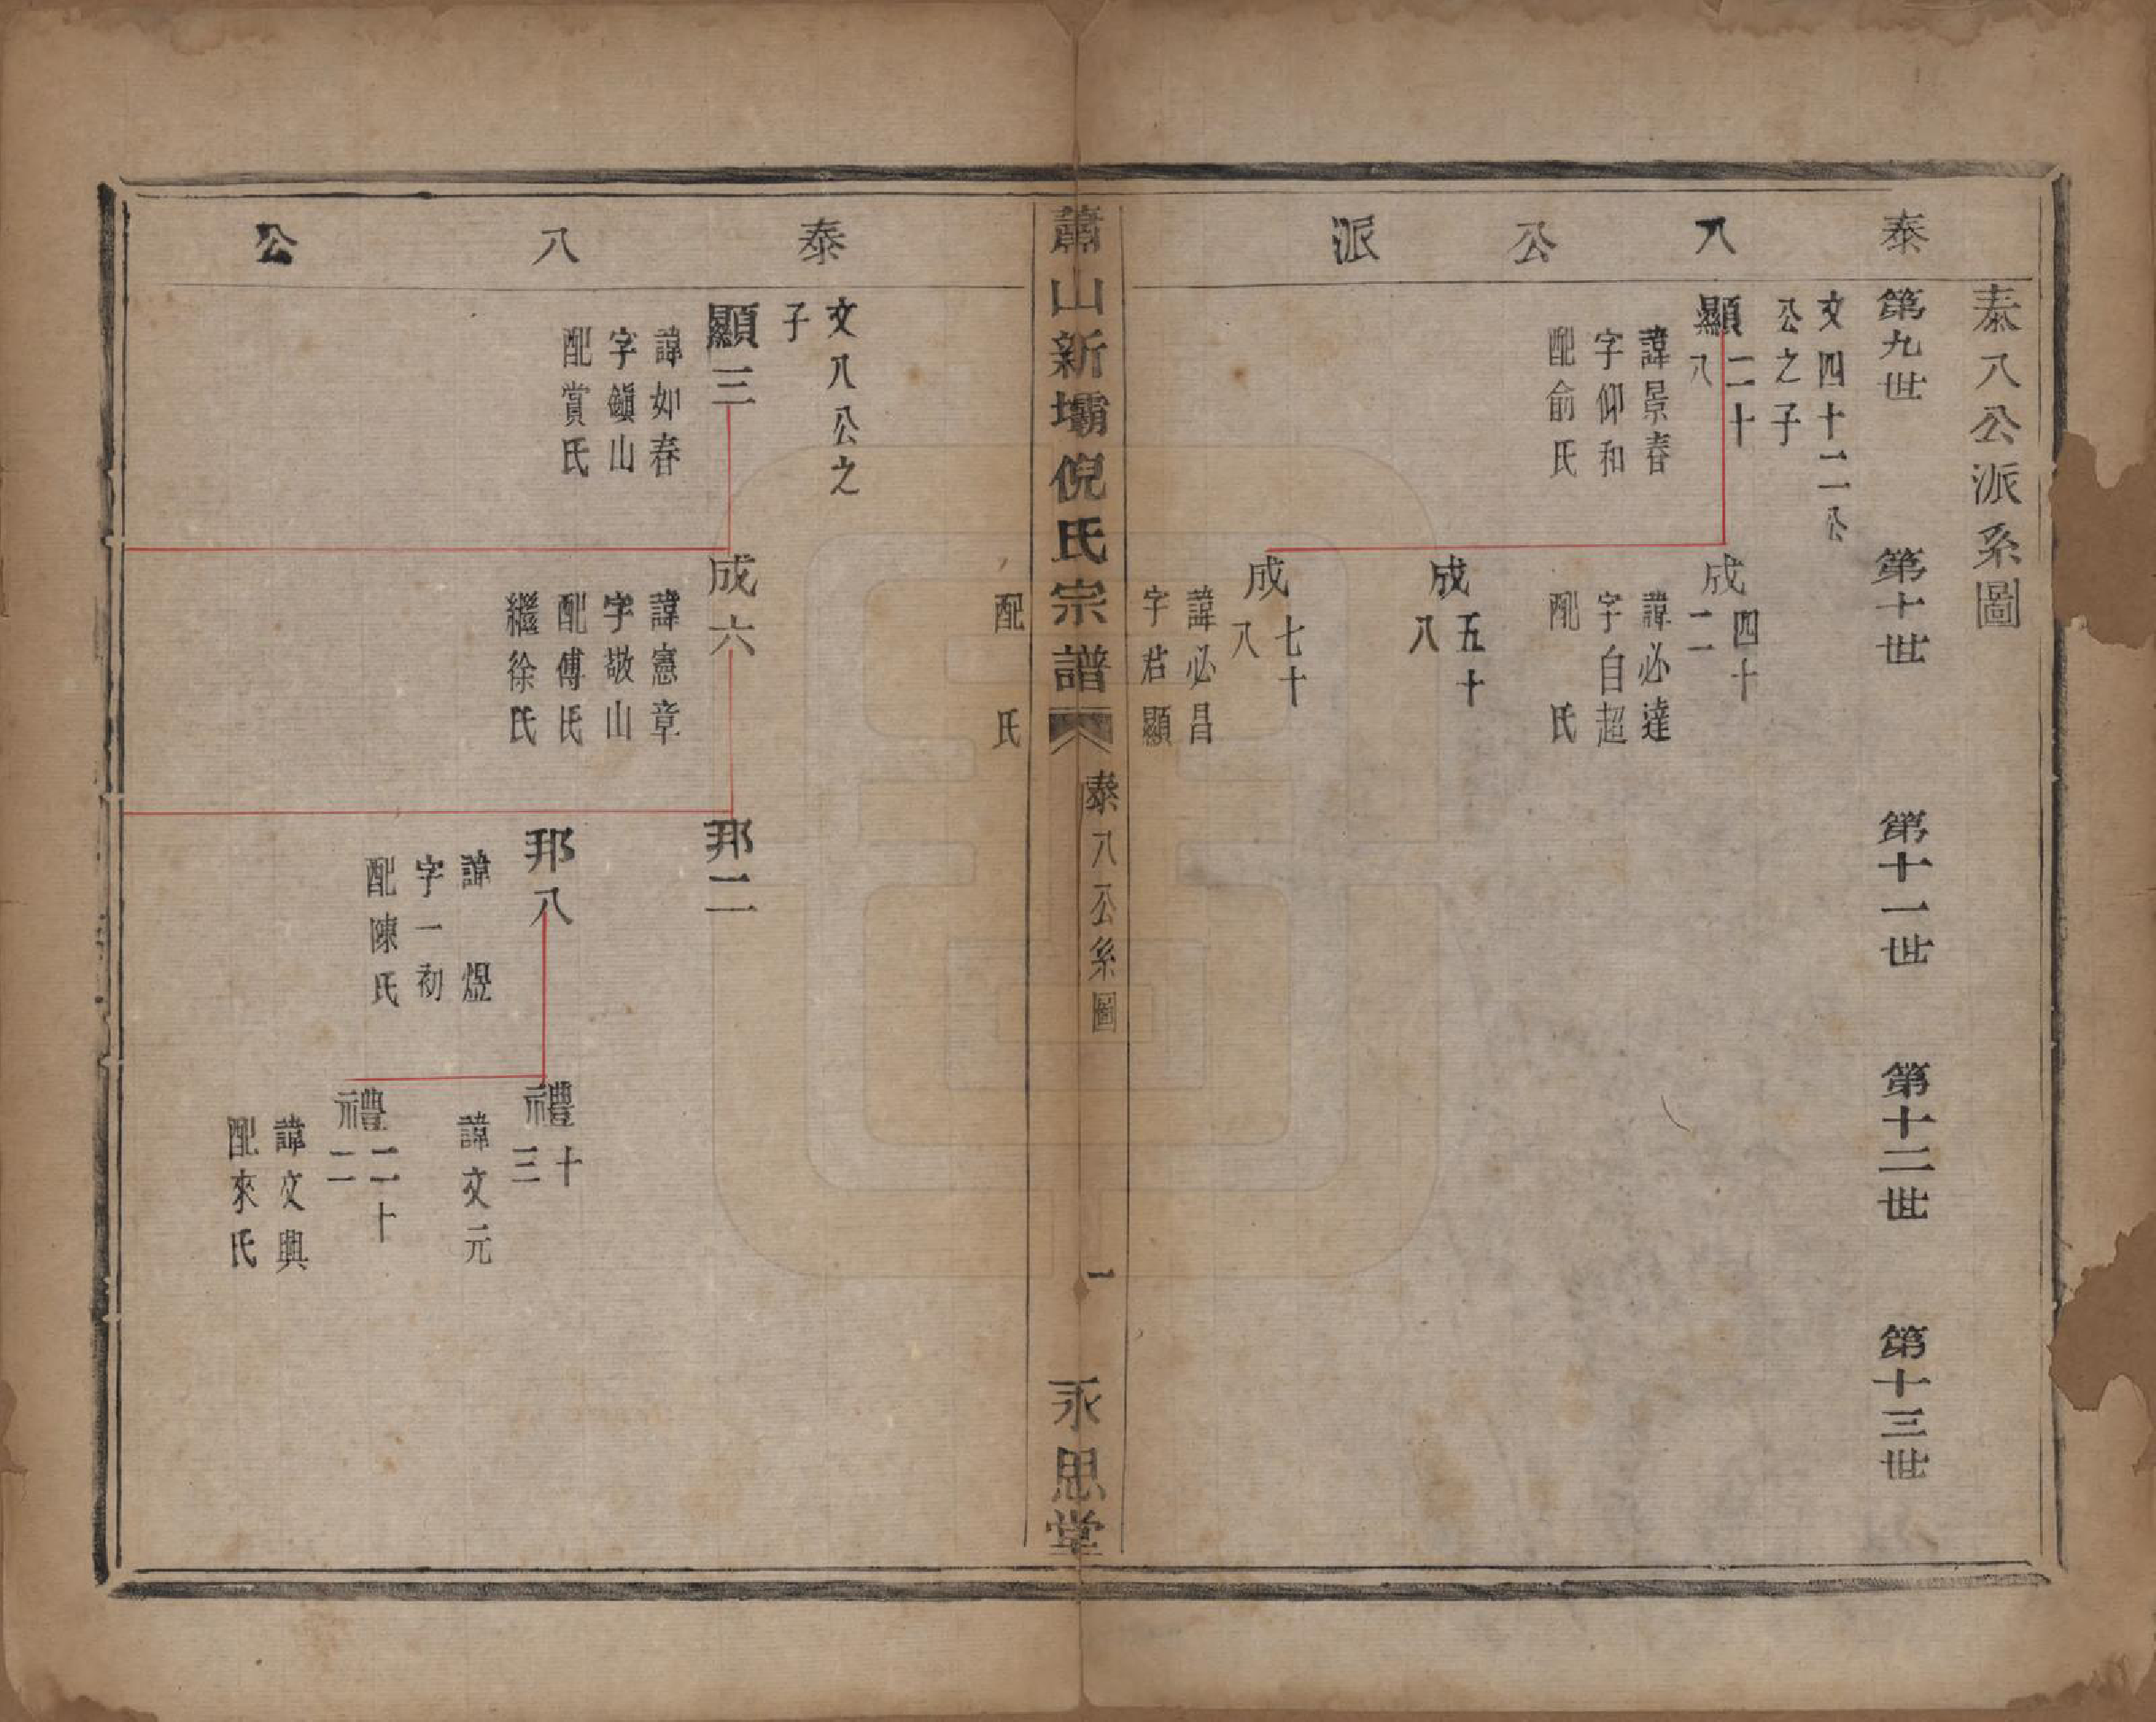 泰八公派系圖
泰八公派
第九世
第十世
第十一世
第十二世
第十三世
文四十二公
公之子
顯二十八
諱景春
字仰和
配俞氏
成四十二
諱必達
字自超
配 氏
成五十八
成七十八
諱必昌
字君顯
蕭山新壩倪氏宗譜
泰八公系圖
一
永思堂
配 氏
泰八公
文八公之
子
顯三
諱如春
字鎮山
配賞氏
成六
諱憲章
字敬山
配傅氏
繼徐氏
邦二
邦八
諱煜
字一初
配陳氏
禮十三
諱文元
禮二十二
諱文興
配來氏